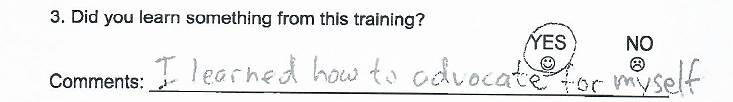 3. Did you learn something from this training?
YES NO
Comments: I learned how to advocate for myself